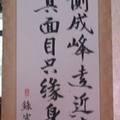 側成峰遠近
真面目只緣身
錄